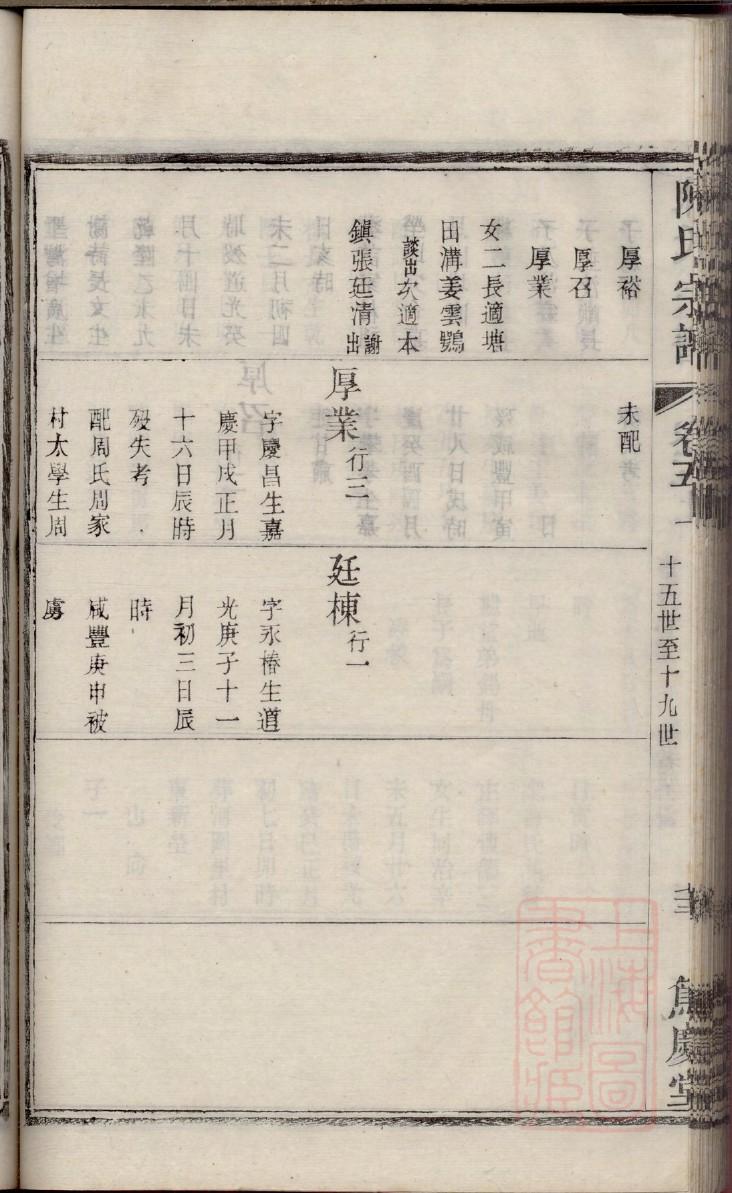 陳氏宗譜
卷五
十五世至十九世
慶堂
厚裕
厚召
厚業
女二長適塘
田溝姜雲鶚
談出次適本
鎮張廷清謝出
未配
厚業行三
字慶昌生嘉
慶甲戌正月
十六日辰時
歿失考
配周氏周家
村太學生周
廷棟行一
字永椿生道
光庚子十一
月初三日辰
時
咸豐庚申被
虜
上海圖
書館